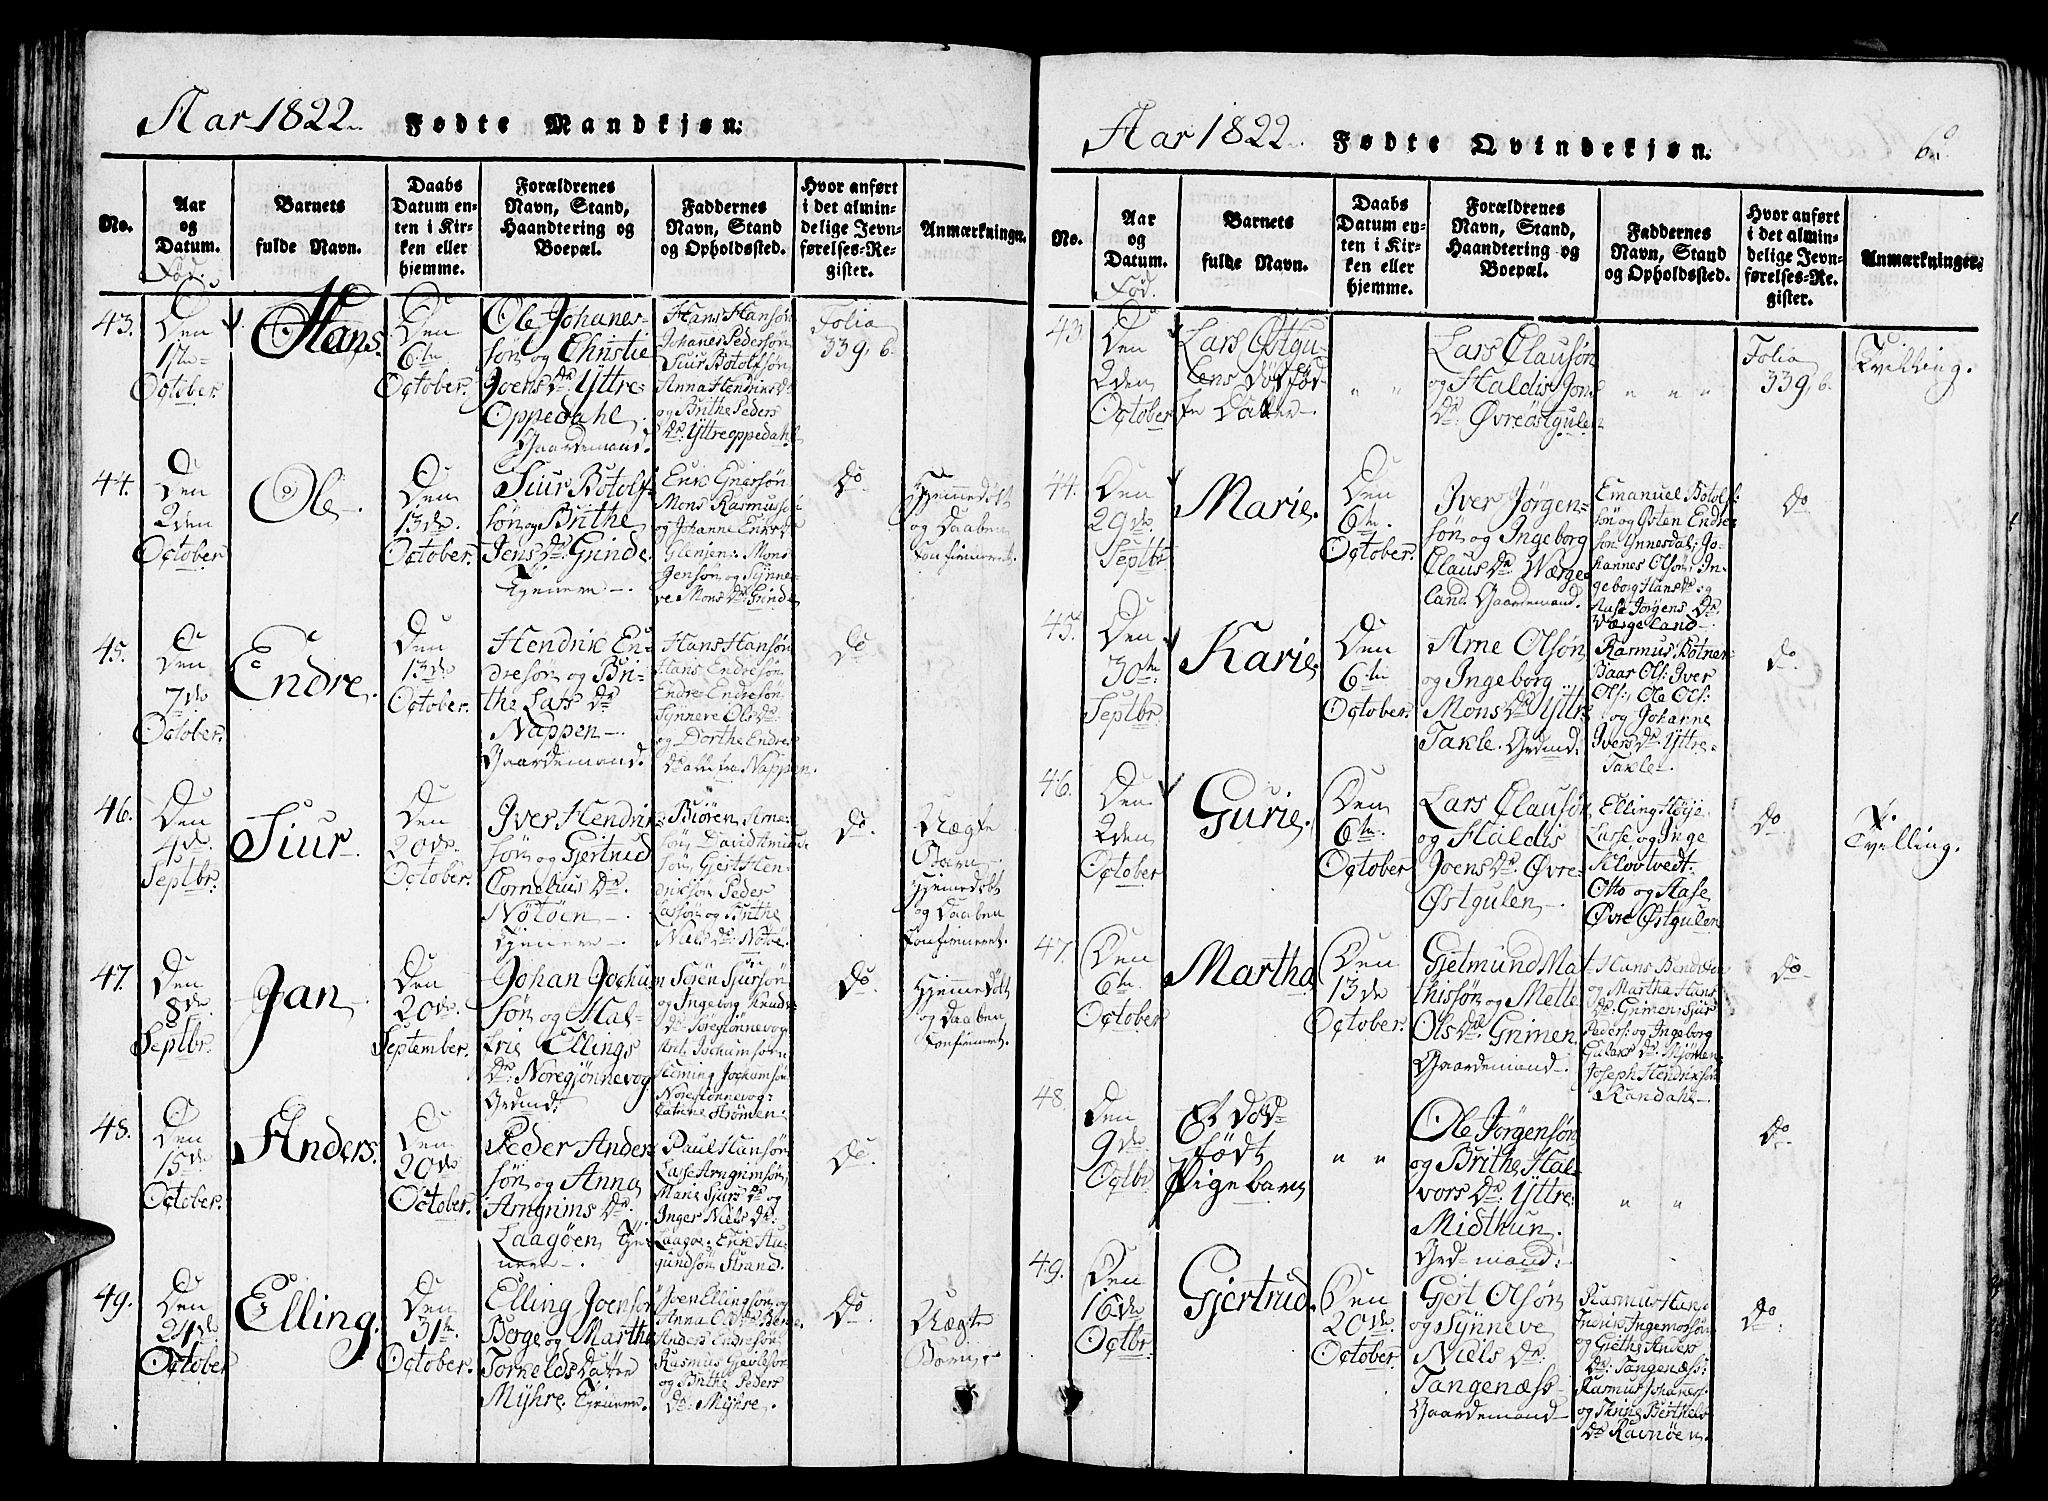 Aar 1822. Fødte Mandkjøn.
No.
Aar
og
Datum.
Fød.
Barnets
fulde Navn.
Daabs
Datum en-
ten i Kir-
ken eller
hjemme.
Forældrenes
Navn, Stand,
Haandtering og
Boepæl.
Faddernes
Navn, Stand
og Opholdssted.
Hvor anført
i det almin-
delige Jevn-
førelses-Re-
gister.
Anmærkninger.
43.
Den
1ste
October.
Hans.
Den
6te
October.
Ole Johanes-
søn og Christie
Joens Dr Yttre
Oppedahl
Gaardemand.
Hans Hansøn
Johanes Pedersøn
Siur Botolfsøn
Anna Hendriks Dr
og Brithe Peders
Dr: Yttreoppedahl
Folio
339, b.
44.
Den
2den
October.
Ole
Den
13de
October.
Siur Botolf-
søn og Brithe
Jens Dr: Grinde
Tjenere
Mons Rasmussøn
og Johanne Eriks Dr
Glenjen: Mons
Jensøn og Synne-
ve Mons Dr Grinde
Do
Hjemmedøbt
og Daaben
Confirmeret.
45.
Den
7de
October.
Endre.
Den
13de
October.
Hendrik En-
dresøn og Bri-
the Lars Dr
Nappen
Gaardemand.
Hans Hansøn
Hans Endresøn
Endre Endresøn
Synneve Ols Dr
og Dorthe Endres
Dr alle fra Nappen.
Do
46.
Den
4de
Septbr.
Siur
Den
20de
October.
Iver Hendrik-
søn og Gjertrud
Cornelius Dr.
Nötöen
tjenere
Biøren Arne-
søn, David Amunds
søn, Gjert Hen-
driksøn Peder
Larsøn og Brithe
Niels Dr: Nötöe.
Do.
Uægte
Barn
hjemedøbt
og Daaben
Confirmeret.
47.
Den
8de
Septbr.
Jan
Den
20de
September.
Johan Jochum
søn og Mal-
krie Ellings
Dr: Noregjønnevog
Grdmd:
Søren Sjursøn
og Ingeborg Knuds
Dr: Søregiønnevog
Ant. Jochumsøn
Fleming Jochumsøn
Noregiønnevog:
Catrine Strømen
Do.
Hjemmedøbt
og Daaben
Confirmeret.
48.
Den
15de
October.
Anders.
Den
20de
October.
Peder Anders
søn og Anna
Arngrims Dr.
Laagøen Tje-
nere
Paul Hansøn
Lasse Arngrimsøn
Marie Sjurs Dr og
Inger Niels Dr.
Laagøe. Erik Au-
gundsøn Strand.
Do.
49.
Den
24de
October
Elling.
Den
31te
October.
Elling Joensøn
Berge og Martha
Torkelds Datter
Myhre. Tjenere.
Joen Ellingsøn og
Anna Ols Dr Berge,
Anders Endresøn
Rasmus
og Brithe Peders
Dr: Myhre.
Do.
Uægte
Barn
Aar 1822. Fødte Qvindekjøn.
60.
No.
Aar
og
Datum.
Fød.
Barnets
fulde Navn.
Daabs
Datum en-
ten i Kir-
ken eller
hjemme.
Forældrenes
Navn, Stand,
Haandtering og
Boepæl.
Faddernes
Navn, Stand
og Opholdssted.
Hvor anført
i det almin-
delige Jevn-
førelses-Re-
gister.
Anmærkninger.
43
Den
2den
October
Lars Östgu-
lens dödfød-
te Datter
" "
Lars Clausøn
og Haldis Jons
Dr. Øvreöstgulen
" " "
Folio
339, b.
Tvilling.
44.
Den
29de
Septbr
Marie.
Den
6te
October.
Iver Jørgen-
søn og Ingeborg
Claus Dr: Værge-
land. Gaardemand.
Emanuel Botolf-
søn og Østen Endre
søn Ynnesdal; Jo-
hannes Olsøn, In-
geborg Hans Dr og
Aase Jørgens Dr
Værgeland
Do
45.
Den
30te
Septbr.
Karie.
Den
6te
October.
Arne Olsøn
og Ingeborg
Mons Dr Yttre
Takle. Grdmd.
Rasmus Botner
Baar Ols: Iver
Ols:, Ole Ols:
og Johanne
Ivers Dr: Yttre-
Takle
Do.
46.
Den
2den
October
Gurie.
Den
6te
October
Lars Clausøn
og Haldis
Joens Dr. Øvre-
Østgulen
Elling Høije
Lasse og Inge
Klovtvedt.
Otto og Aase
Øvre Østgulen
Do
Tvelling.
47.
Den
6te
October
Martha
Den
13de
October.
Gjetmund Mat-
thissøn og Mette
Ols Dr. Grimen
Gaardemand
Hans Bendixsøn
og Martha Hans
Dr: Grimen, Sjur
Peders: og Ingeborg
Joseph Hendriksøn
Randahl
Do
48.
Den
9de
Octbr
Et död-
födt
Pigebarn
" "
Ole Jörgensøn
og Brithe Hal-
vors Dr: Yttre
Midthun.
Grd-mand:
" "
Do
49.
Den
16de
Octbr.
Gjertrud.
Den
20de
October.
Gjert Olsøn
og Synneve
Niels Dr.
Tangenæss
Gaardemand
Rasmus Hans:
Fredrik Ingemorsøn
og Grethe Anders
Dr: Tangenæss:
Rasmus Johaness:
og Trine Berthels
Dr Ravnöen
Do: